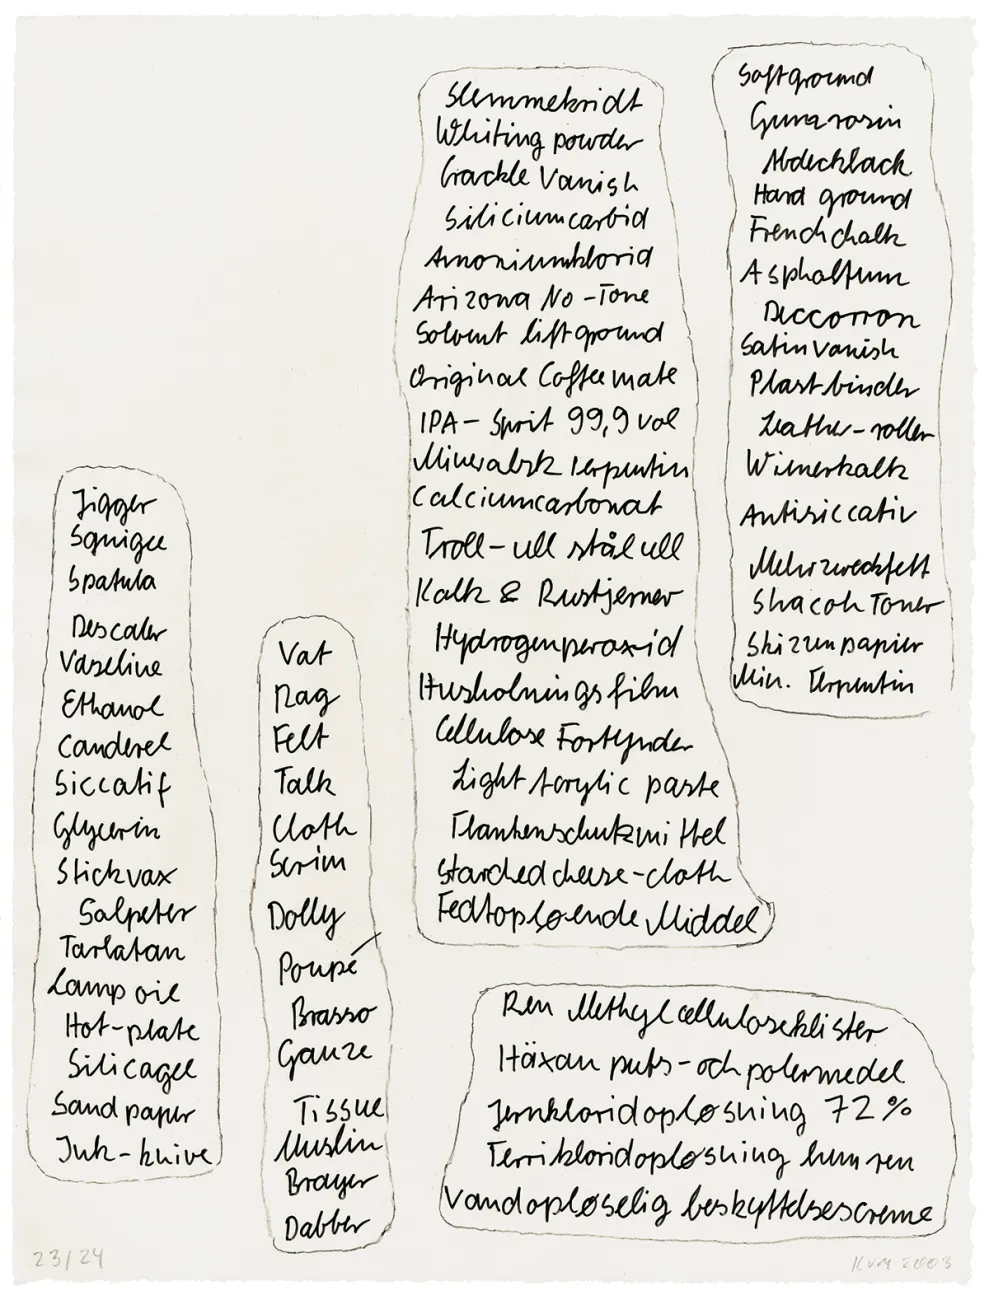 Jigger
Squigee
Spatula
Descaler
Vaseline
Ethanol
Canderel
Siccatif
Glycerin
Stickvax
Salpeter
Tarlatan
Lamp oil
Hot-plate
Silicagel
Sand paper
Ink-knive
Vat
Rag
Felt
Talk
Cloth
Scrim
Dolly
Poupé
Brasso
Gauze
Tissue
Muslin
Brayer
Dabber
Slemmekridt
Whiting powder
Crackle Vanish
Siliciumcarbid
Amoniumklorid
Arizona No-Tone
Solvent liftground
Original Coffeemate
IPA-Sprit 99,9 vol
Mineralsk Terpentin
Calciumcarbonat
Troll-ull stålull
Kalk & Rustjerner
Hydrogenperoxid
Husholningsfilm
Cellulose Fortynder
Light Acrylic paste
Flankenschutzmittel
Starched cheese-cloth
Fedtopløsende Middel
Softground
Gum rosin
Abdecklack
Hard ground
Frenchchalk
Asphaltum
Deccorron
Satin Vanish
Plastbinder
Leather-roller
Wienerkalk
Antisiccativ
Mehrzweckfett
Shacoh Toner
Skizzenpapier
Min. Terpentin
Ren Methylcelluloseklister
Häxan puts-och polermedel
Jernkloridopløsning 72%
Ferrikloridopløsning hum ren
Vandopløselig beskyttelsescreme
23/24
KVM 2003